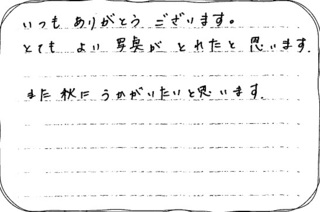 いつも ありがとう ございます。
とても よい 写真が とれたと 思います.
また 秋に うかがいたいと思います.